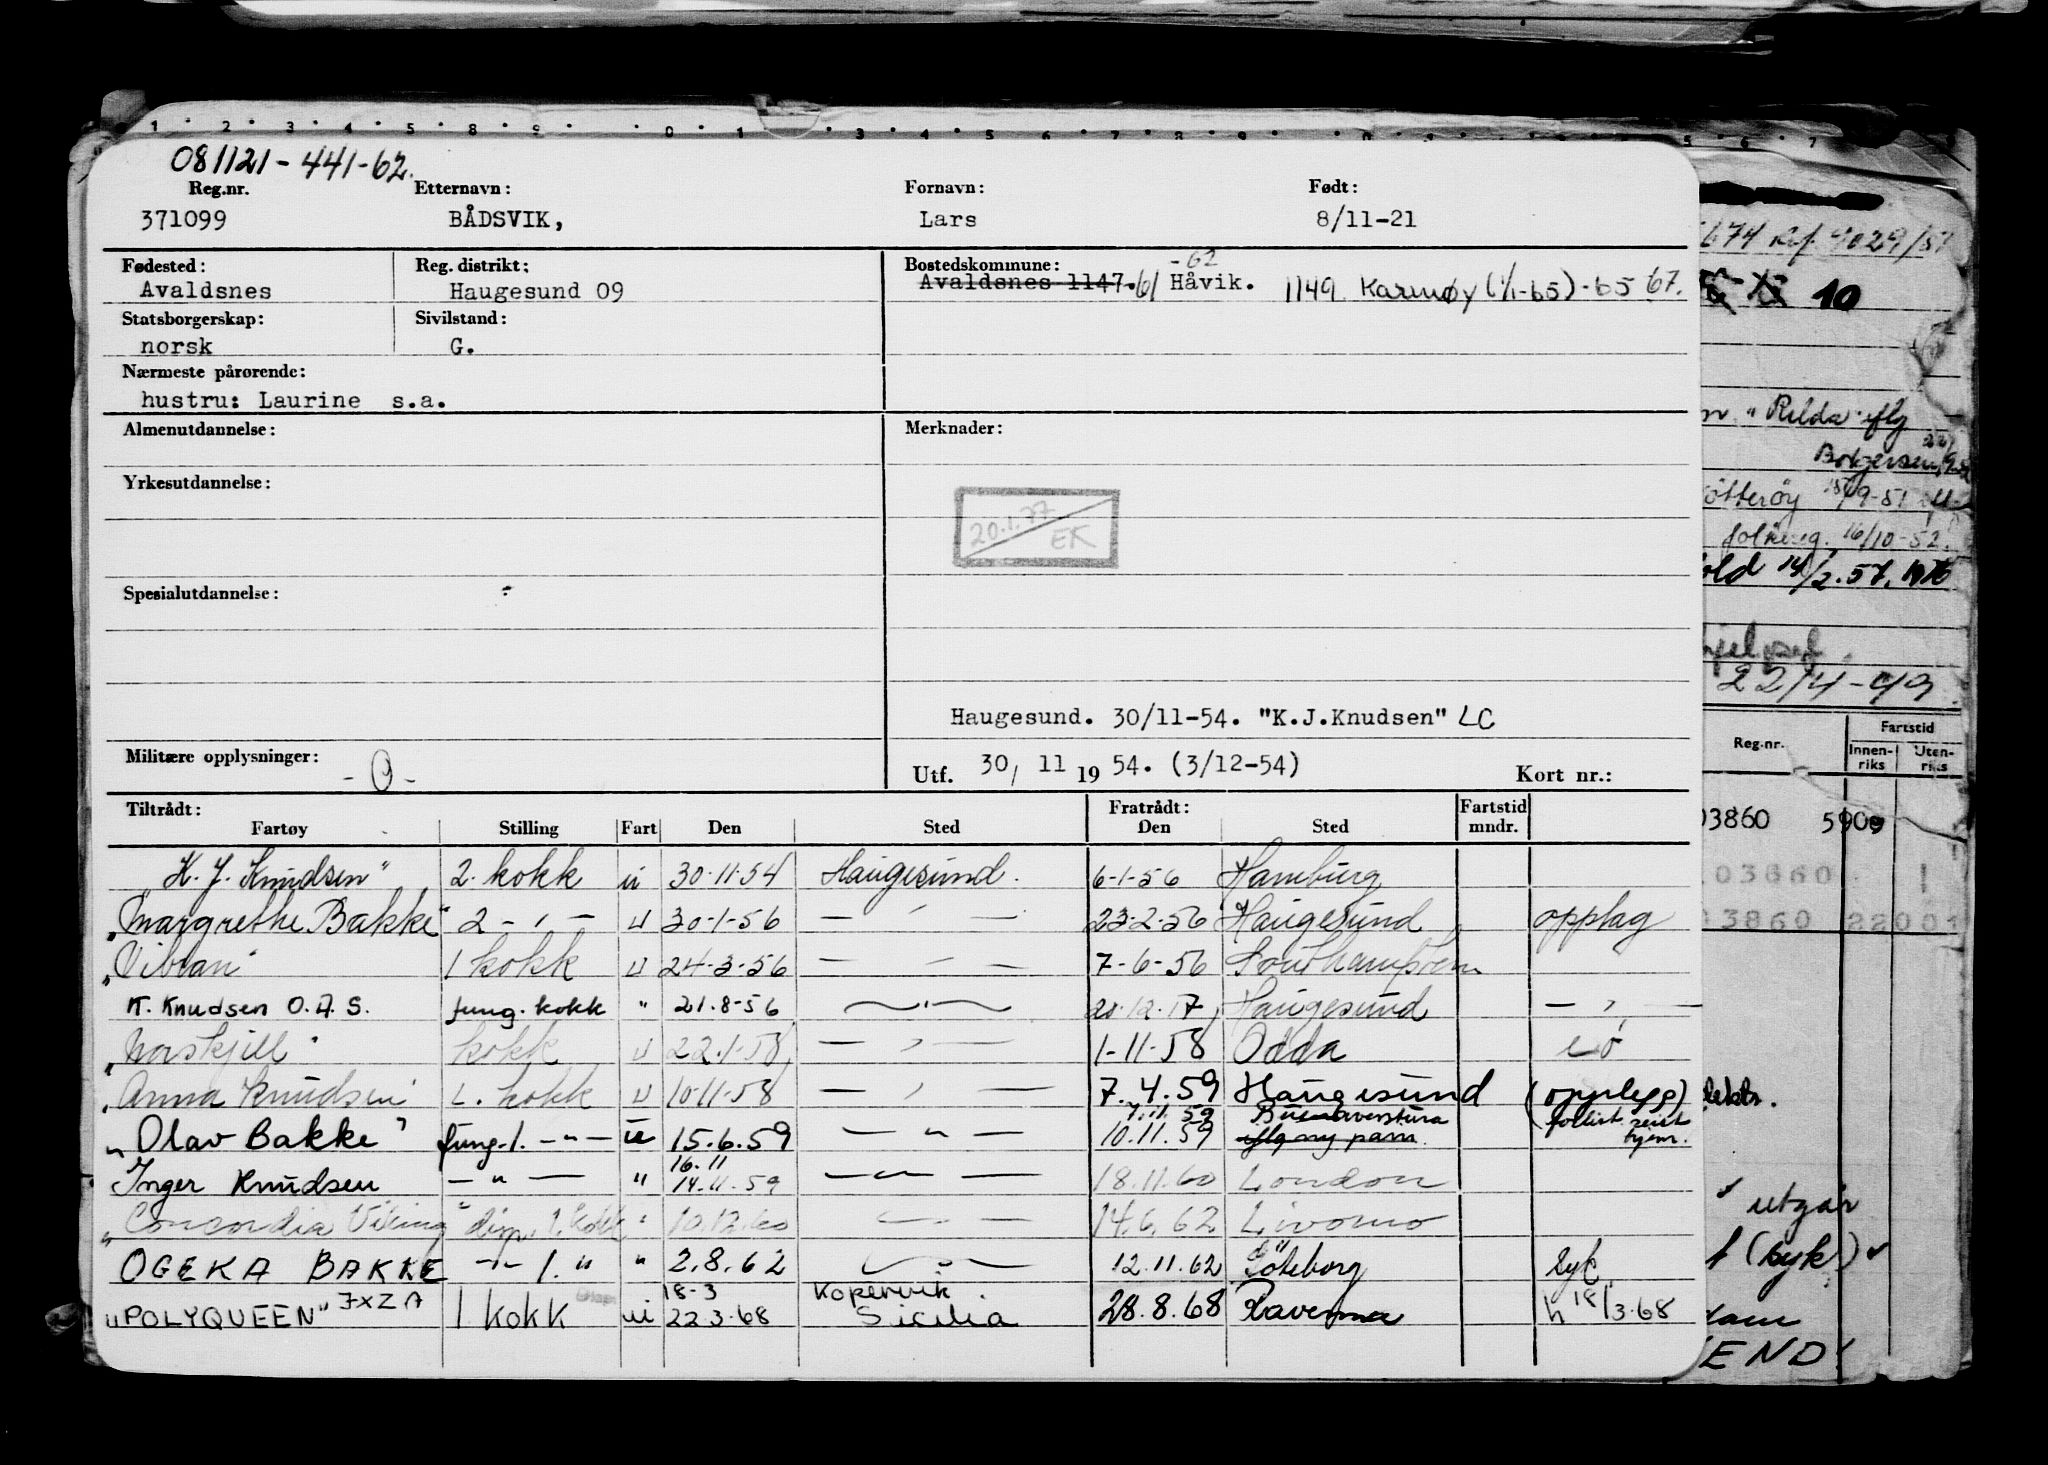 081121-441-62.
Reg.nr. Etternavn: Fornavn: Født:
371099 BÅDSVIK, Lars 8/11-21
Fødested: Reg. distrikt: Bostedskommune: -62
Avaldsnes Haugesund 09 Avaldsnes 1147.61 Håvik. 1149 Karmøy (1/1-65)-65 67.
Statsborgerskap: Sivilstand:
norsk G.
Nærmeste pårørende:
hustru: Laurine s.a.
Almenutdannelse: Merknader:
Yrkesutdannelse:
20.1.77
EK
Spesialutdannelse:
Haugesund. 30/11-54. "K.J.Knudsen" LC
Militære opplysninger: -0-
Utf. 30/ 11 19 54. (3/12-54) Kort nr.:
Tiltrådt: Fratrådt: Fartstid
Fartøy Stilling Fart Den Sted Den Sted mndr.
K. J. Knudsen" 2. kokk u 30.11.54 Haugesund. 6-1-56 Hamburg
"Margrethe Bakke" 2 - " - u 30-1-56 — " — 23-2-56 Haugesund opplag
"Vibran" 1 kokk u 24-3-56 — " — 7-6-56 Southampton
K. Knudsen O.A.S. fung. kokk " 21.8-56 — " — 20.12.17 Haugesund — " —
"Norskjell" kokk u 22.1.58 — " — 1-11-58 Odda
"Anna Knudsen" 1. kokk u 10-11-58 — " — 7.4.59 Haugesund (opplegg)
7.11.59 Buenaventura
"Olav Bakke" fung. 1. — " — u 15.6.59 — " — 10.11.59 iflg ny pam. hjem.
16.11
Inger Knudsen — " — " 14.11.59 — " — 18.11.60 London
"Concordia Viking" disp. 1. kokk " 10.12.60 — " — 14.6.62 Livorno
OGEKA BAKKE — " — 1. " " 2.8.62 — " — 12.11.62 Göteborg syk
18-3 Kopervik.
"POLYQUEEN" JXZA 1 kokk u 22.3.68 Sicilia 28.8.68 Ravenna h 18/3-68
1674 Ref. 4029/57
10
"Rilda" iflg
16/10-52.
14/2.57.
22/4-49
Reg.nr. Fartstid
Innen-riks Uten-riks
03860 590
03860
3860 22001
utgår
(syk)
END!